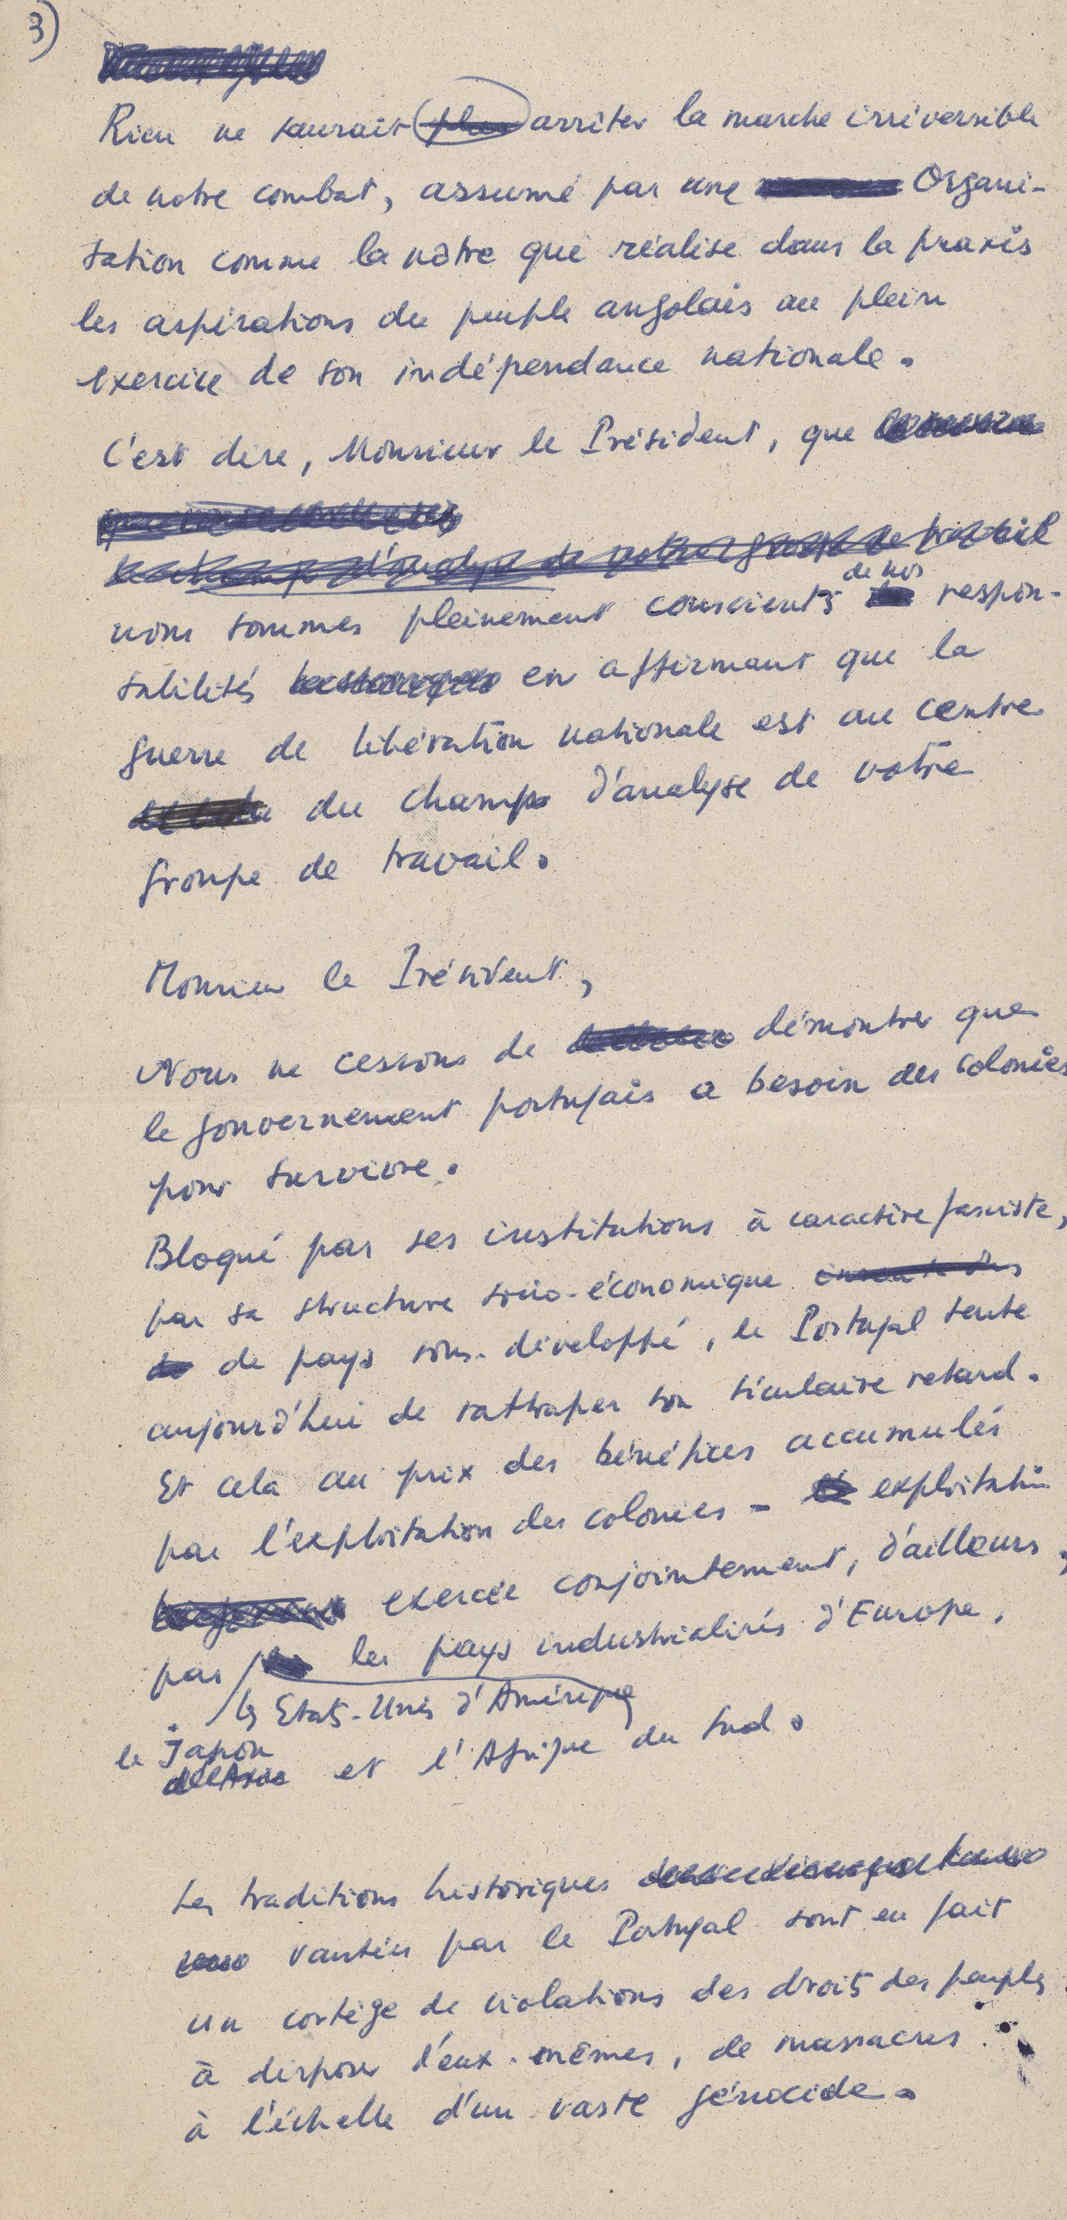 3)
Rien ne saurait plus arrêter la marche irréversible
de notre combat, assumé par une Organi-
sation comme la nôtre que réalise dans la praxis
les aspirations du peuple angolais au plein
exercice de son indépendance nationale.
C'est dire, Monsieur le Président, que
le champ d'analyse de votre groupe de travail
de nos
nous sommes pleinement conscients respon-
sabilités en affirmant que la
guerre de libération nationale est au centre
du champ d'analyse de votre
groupe de travail.
Monsieur le Président,
Nous ne cessons de démontrer que
le gouvernement portugais a besoin des colonies
pour survivre.
Bloqué par ses institutions à caractère fasciste,
par sa structure socio-économique
de pays sous-développé, le Portugal tente
aujourd'hui de rattraper son séculaire retard.
Et cela au prix des bénéfices accumulés
par l'exploitation des colonies - exploitation
exercée conjointement, d'ailleurs,
par les pays industrialisés d'Europe,
les Etats-Unis d'Amérique
le Japon
de l'Asie et l'Afrique du Sud.
Les traditions historiques
vantées par le Portugal sont en fait
un cortège de violations des droits des peuples
à disposer d'eux-mêmes, de massacres
à l'échelle d'un vaste génocide.